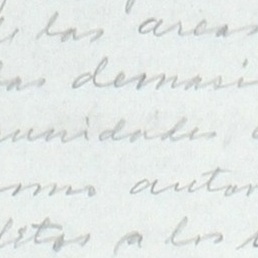 de las areas
las demasi
unidades
omo autor
letos a los